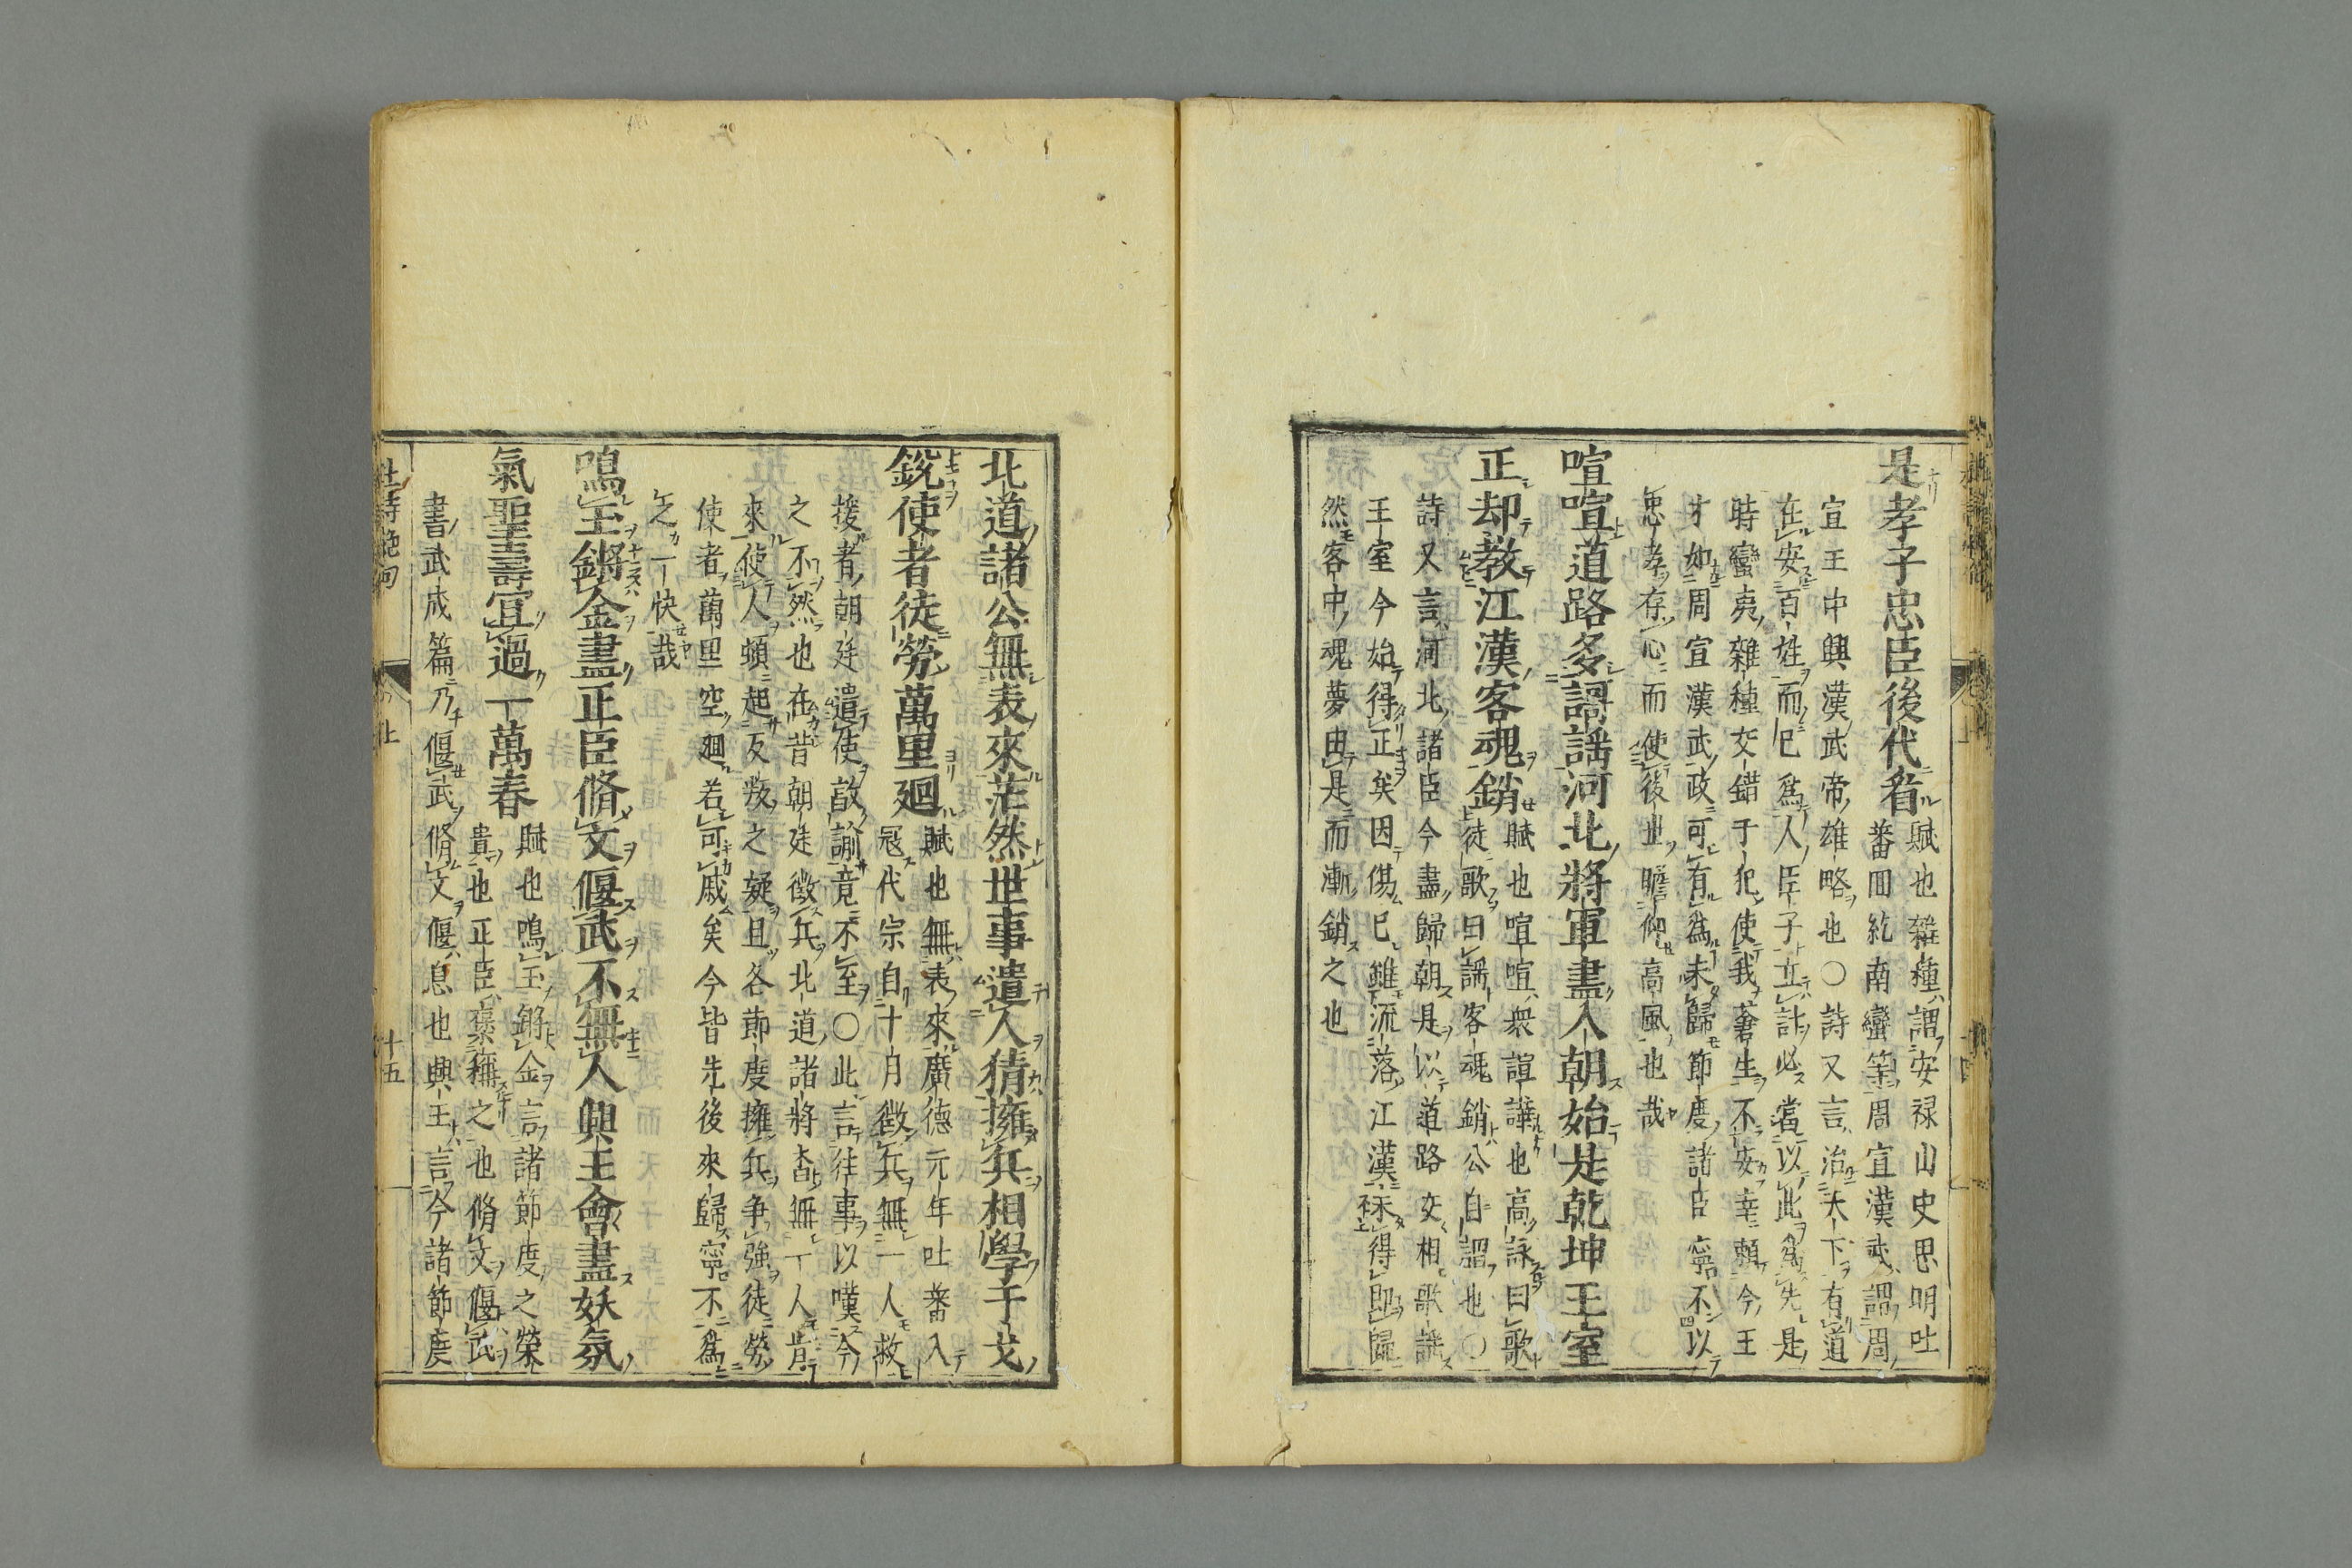 是孝子忠臣後代看
賦也雜種謂安禄山史思明吐
蕃回紇南蠻等周宣漢武謂周
宣王中興漢武帝雄略也○詩又言治天下有道
在安百姓而已爲人臣子立計必當以此爲先是
時蠻夷雜種交錯于犯使我蒼生不安幸賴今王
才如周宣漢武政可有爲未歸節度諸臣寧不以
忠孝存心而使後世瞻仰高風也哉
喧喧道路多謌謡河北將軍盡入朝始是乾坤王室
正却教江漢客魂銷
賦也喧喧衆諠譁也高詠曰歌
徒歌曰謡客魂銷公自謂也○
詩又言河北諸臣今盡歸朝是以道路交相歌謡
王室今始得正矣因傷已雖流落江漢未得即歸
然客中魂夢由是而漸銷之也
北道諸公無表來茫然世事遣人猜擁兵相學干戈
鋭使者徒勞萬里廻
賦也無表來廣德元年吐蕃入
冦代宗自十月徴兵無一人救
援者朝廷遣使敦諭竟不至○此言往事以嘆今
之不然也在昔朝廷徴兵北道諸將杳無一人肯
來使人頓起反叛之疑且各節度擁兵争強徒勞
使者萬里空廻若可戚矣今皆先後來歸寧不爲
之一快哉
鳴玉鏘金盡正臣脩文偃武不無人興王會盡妖氛
氣聖壽宜過一萬春
賦也鳴玉鏘金言諸節度之榮
貴也正臣褒稱之也脩文偃武
書武成篇乃偃武脩文偃息也興王言今諸節度
杜詩絶句
上
十五